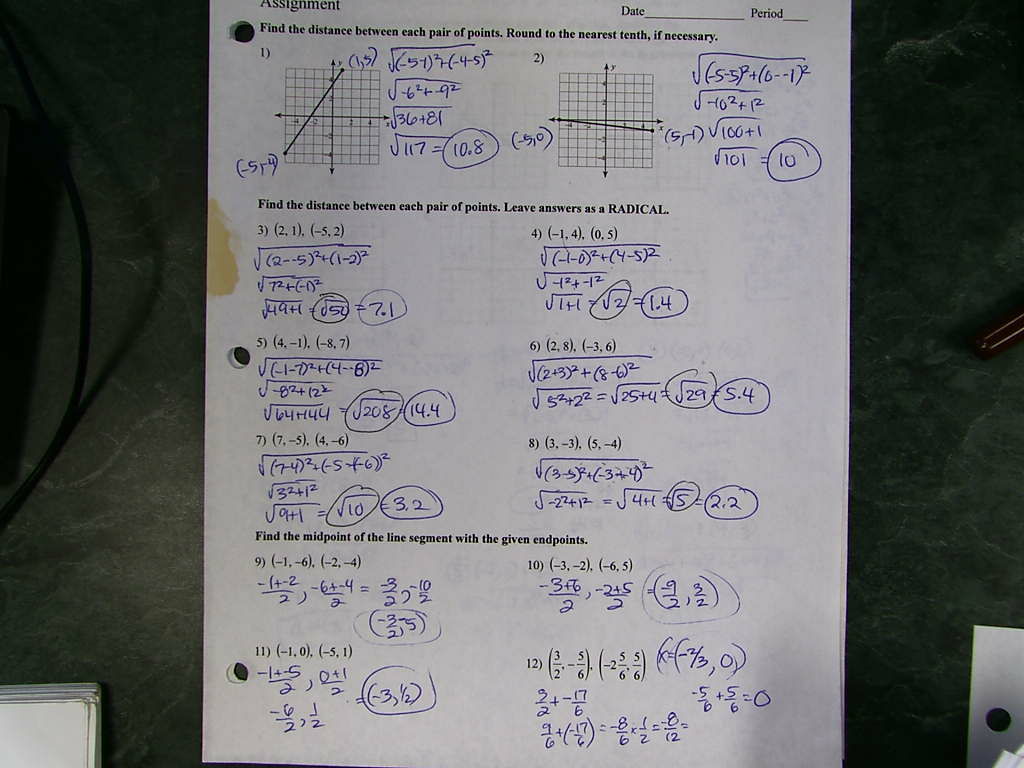 Assignment
Date____________ Period____
Find the distance between each pair of points. Round to the nearest tenth, if necessary.
1)
(1,5)
√(-5-1)²+(-4-5)²
√-6²+-9²
√36+81
√117 = 10.8
(-5,-4)
2)
√(-5-5)²+(0--1)²
√-10²+1²
√100+1
√101 = 10
(-5,0)
(5,-1)
Find the distance between each pair of points. Leave answers as a RADICAL.
3) (2, 1), (−5, 2)
√(2--5)²+(1-2)²
√7²+(-1)²
√49+1 = √50 = 7.1
4) (−1, 4), (0, 5)
√(-1-0)²+(4-5)²
√-1²+-1²
√1+1 = √2 = 1.4
5) (4, −1), (−8, 7)
√(-1-7)²+(4--8)²
√-8²+12²
√64+144 = √208 = 14.4
6) (2, 8), (−3, 6)
√(2+3)²+(8-6)²
√5²+2² = √25+4 = √29 = 5.4
7) (7, −5), (4, −6)
√(7-4)²+(-5-(-6)²
√3²+1²
√9+1 = √10 = 3.2
8) (3, −3), (5, −4)
√(3-5)²+(-3+4)²
√-2²+1² = √4+1 = √5 = 2.2
Find the midpoint of the line segment with the given endpoints.
9) (−1, −6), (−2, −4)
-1+-2/2, -6+-4/2 = -3/2, -10/2
(-3/2, -5)
10) (−3, −2), (−6, 5)
-3+6/2, -2+5/2 = (-9/2, 3/2)
11) (−1, 0), (−5, 1)
-1+-5/2, 0+1/2 = (-3, 1/2)
-6/2, 1/2
12) (3/2, −5/6), (−2 5/6, 5/6)
(-2/3, 0)
3/2 + -17/6
-5/6 + 5/6 = 0
9/6 + (-17/6) = -8/6 × 1/2 = -8/12 =